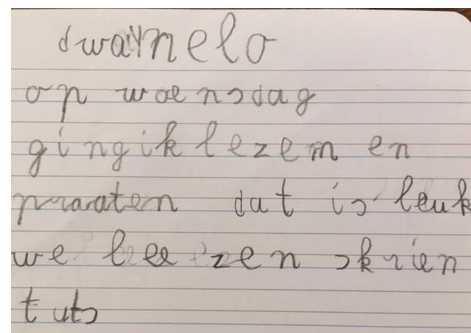 dwaynelo
op woensdag
gingik lezem en
praaten dat is leuk
we lee zen skrien
tuts